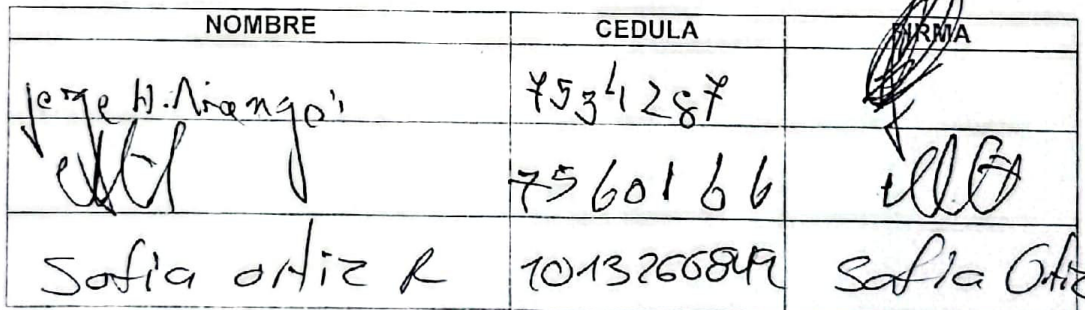 NOMBRE CEDULA FIRMA
Jorge H. Arango 7534287
7560166
Sofia ortiz R 1013266849 Sofia Ortiz